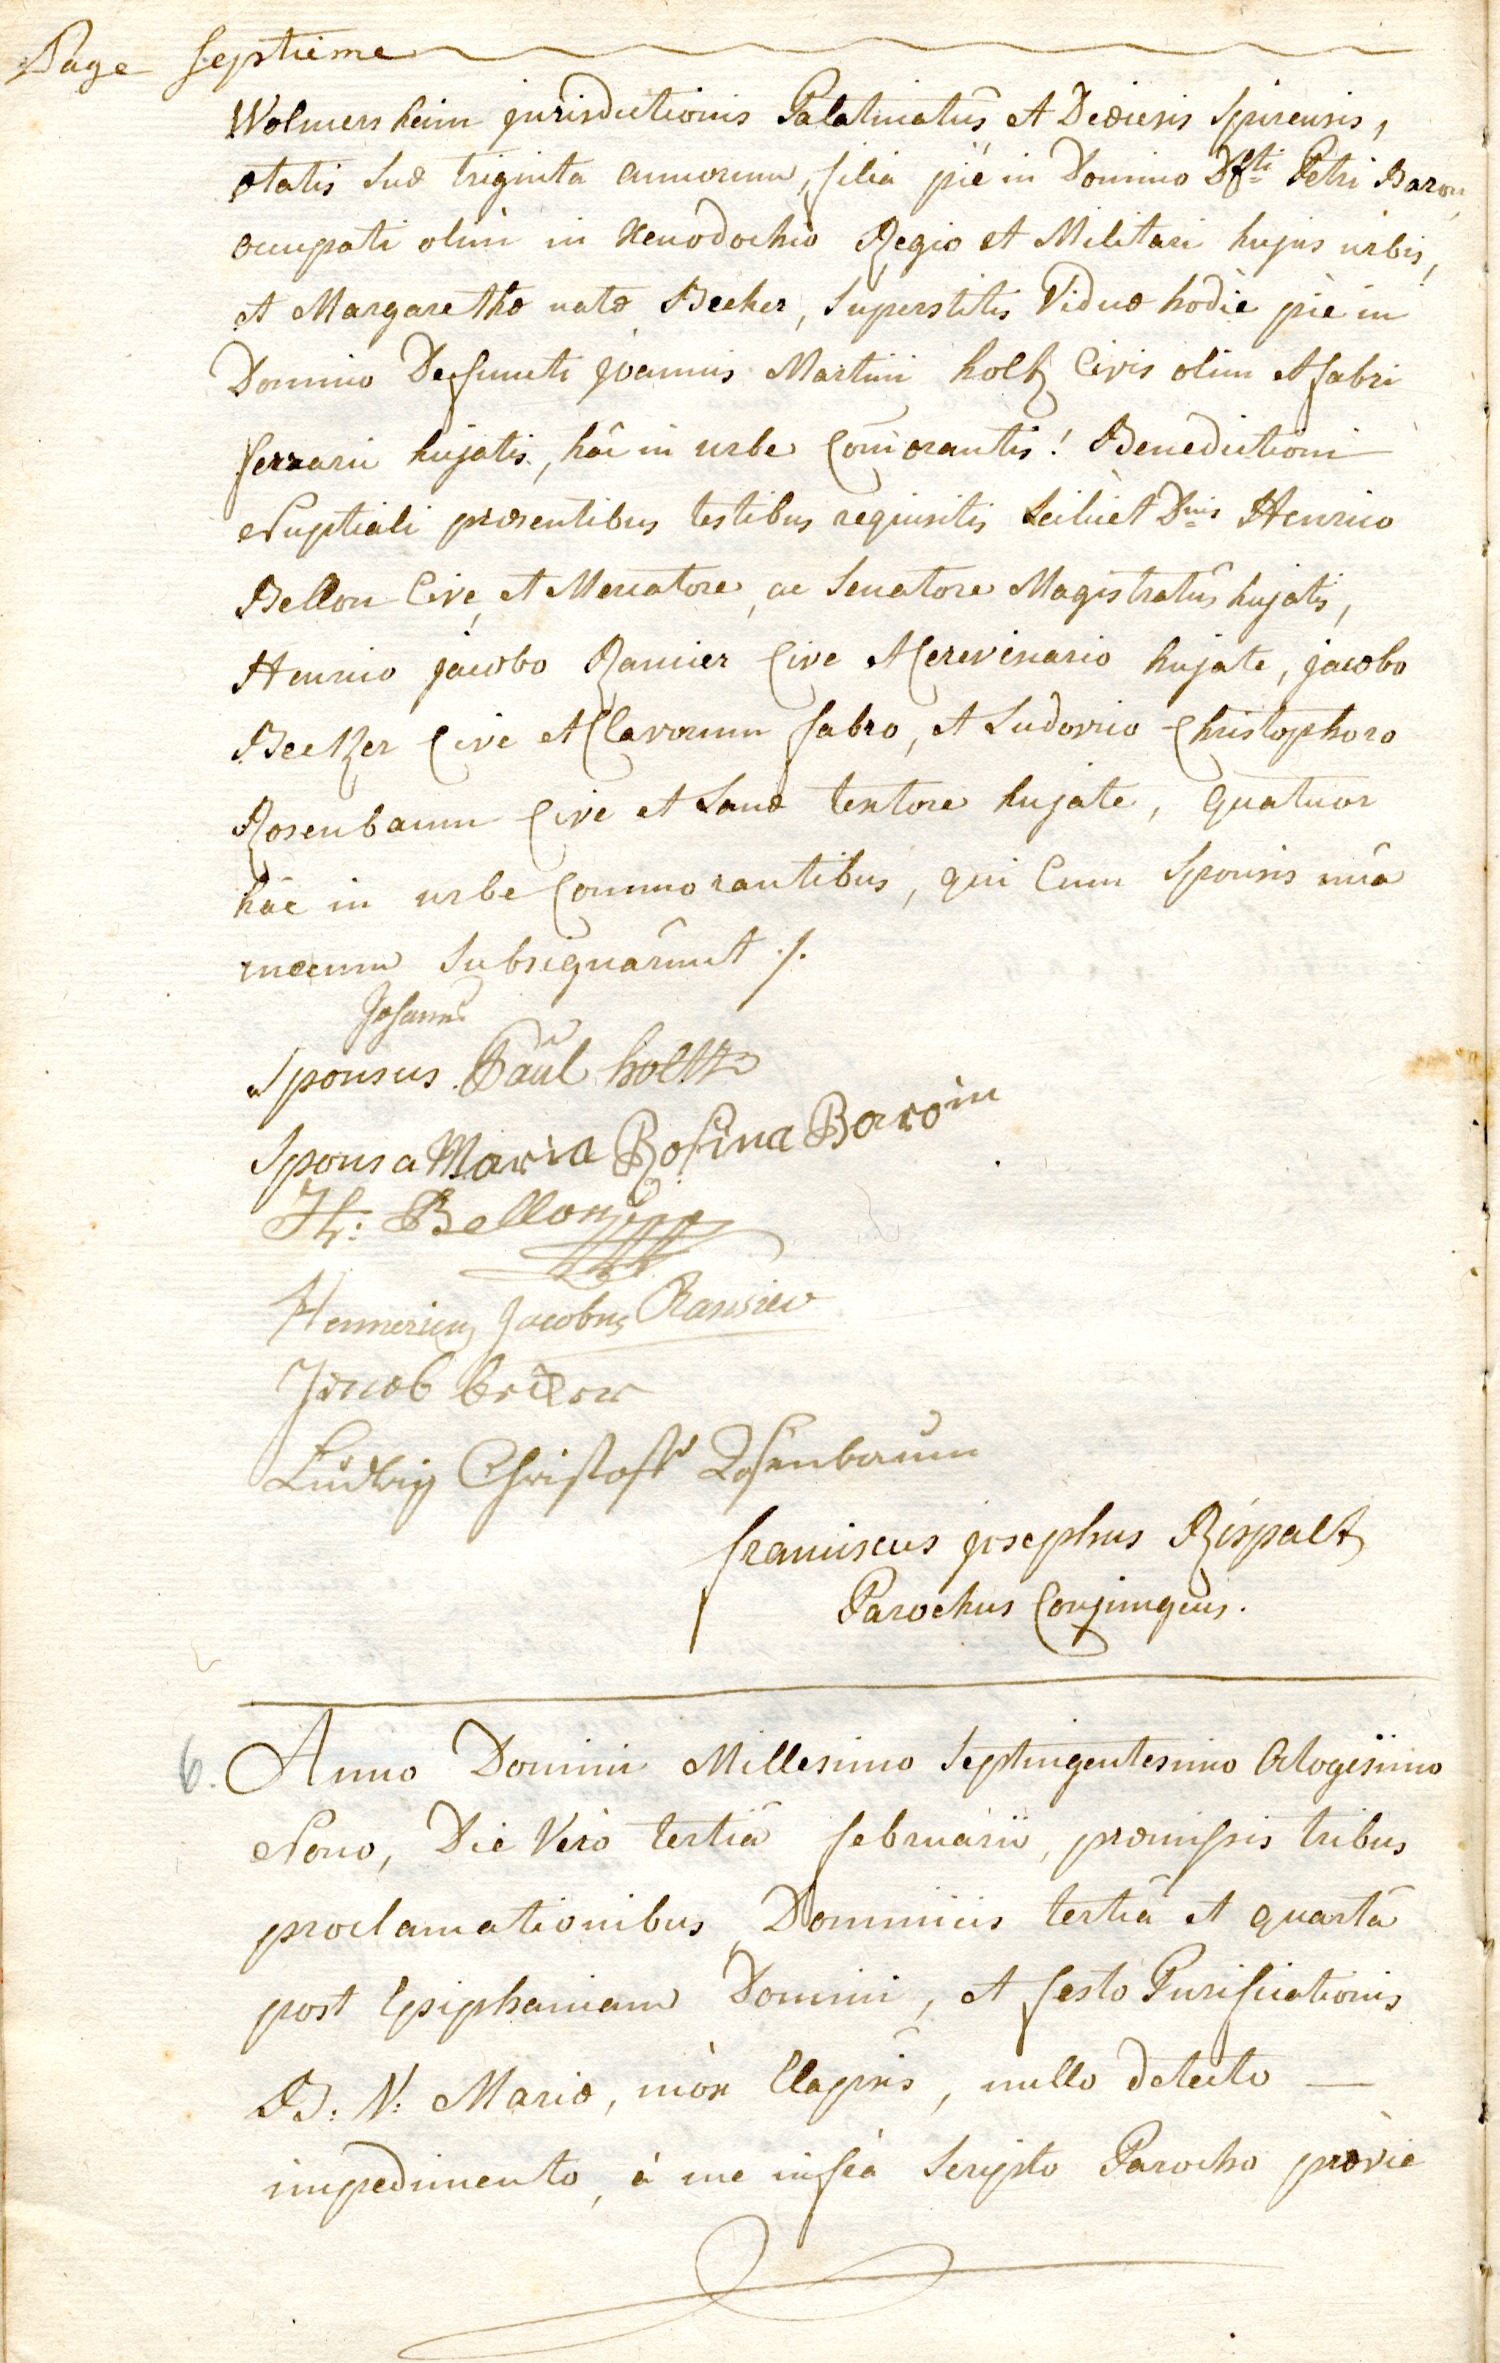 Page septieme
Wolmersheim jurisdictionis Palatinatûs et Dioecesis Spirensis,
ætatis suæ triginta annorum, filia piè in Domino Dfti Petri Baron
occupati olim in Xenodochio Regio et Militari hujus urbis,
et Margarethæ natæ Becker, superstitis Viduæ hodiè piè in
Domino Defuncti joannis Martini holtz Civis olim et fabri
ferrarii hujatis, hâc in urbe Com̄orantis! Benedictioni
Nuptiali præsentibus testibus requisitis scilicèt Dnis Henrico
Bellon Cive, et Mercatore, ac Senatore Magistratûs hujatis,
Henrico jacobo Ramier Cive et Cerevisiario hujate, jacobo
Becker Cive et Clavorum fabro, et Ludovico Christophoro
Rosenbaum Cive et Lanæ textore hujate, quatuor
hâc in urbe Commorantibus, qui Cum Sponsis unâ
mecum subsignârunt ./.
Johann
Sponsus Paul holtz
Sponsa Maria Rosina Baroin
H: Bellon
Hennericus Jacobus Ramier
Jacob becker
Ludwig Christoff Rosenbaum
franciscus josephus Rispalt
Parochus Conjungens.
6. Anno Domini Millesimo Septingentesimo Octogesimo
Nono, Die Verò tertiâ februarii, præmissis tribus
proclamationibus Dominicis tertiâ et quartâ
post Epiphaniam Domini, et festo Purificationis
B: V: Mariæ, mòx Elapsis, nullo detecto —
impedimento, à me infrà scripto Parocho præviè